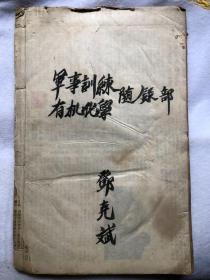 軍事訓練
有机化學 随錄部
鄧克斌